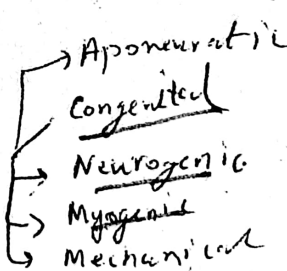 Aponeuratic
Congenital
Neurogenic
Myogenic
Mechanical